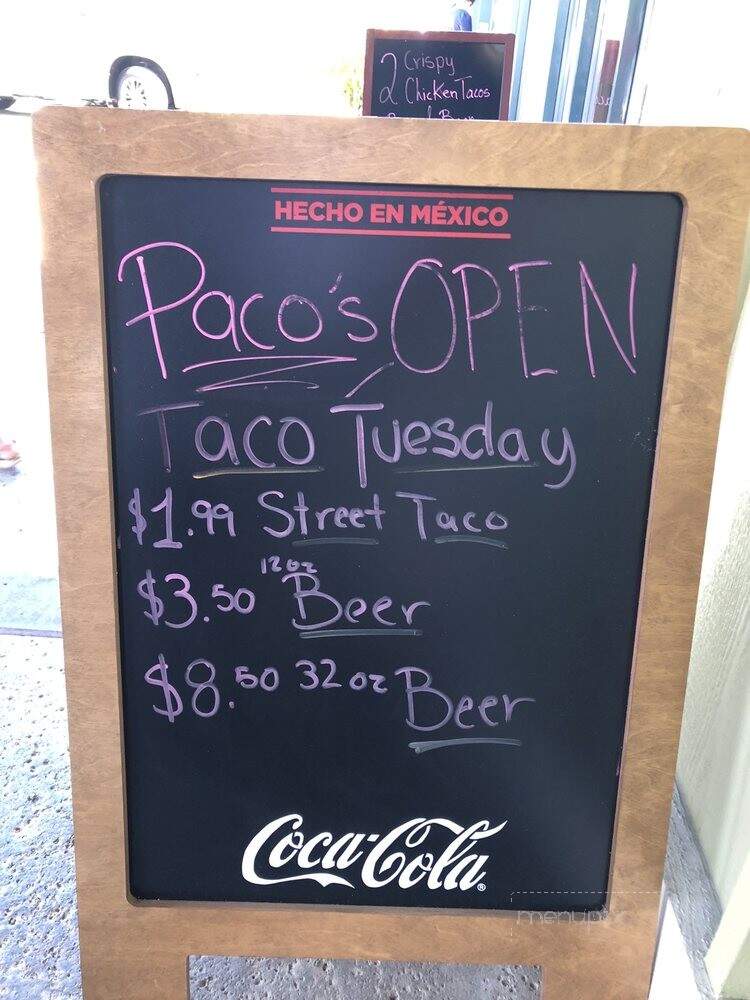 2 Crispy
Chicken Tacos
HECHO EN MÉXICO
Paco's OPEN
Taco Tuesday
$1.99 Street Taco
$3.50 12oz Beer
$8.50 32 oz Beer
Coca-Cola®